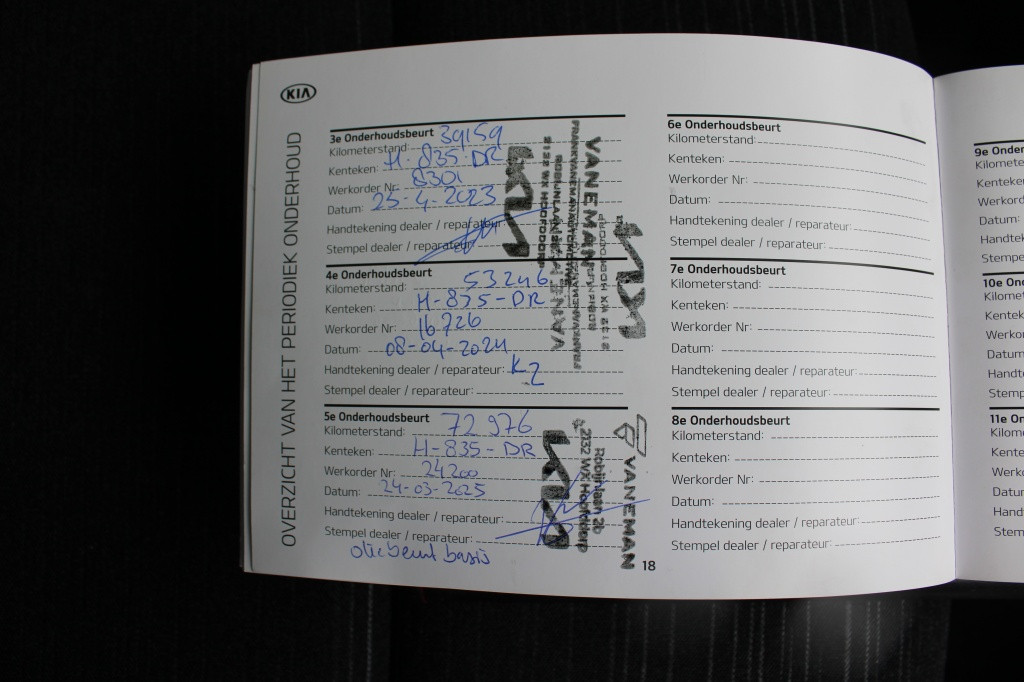 KIA
OVERZICHT VAN HET PERIODIEK ONDERHOUD
3e Onderhoudsbeurt 39159
Kilometerstand:
Kenteken: H-835-DR
Werkorder Nr: 8301
Datum: 25-4-2023
Handtekening dealer / reparateur:
Stempel dealer / reparateur:
VANEMAN
2132 WX HOOFDDORP
4e Onderhoudsbeurt
Kilometerstand: 53246
Kenteken: H-835-DR
Werkorder Nr: 16726
Datum: 08-04-2024
Handtekening dealer / reparateur: KZ
Stempel dealer / reparateur:
5e Onderhoudsbeurt
Kilometerstand: 72976
Kenteken: H-835-DR
Werkorder Nr: 24200
Datum: 24-03-2025
Handtekening dealer / reparateur:
Stempel dealer / reparateur:
oliebeurt basis
VANEMAN
Robijnlaan 2b
2132 WX Hoofddorp
18
6e Onderhoudsbeurt
Kilometerstand:
Kenteken:
Werkorder Nr:
Datum:
Handtekening dealer / reparateur:
Stempel dealer / reparateur:
7e Onderhoudsbeurt
Kilometerstand:
Kenteken:
Werkorder Nr:
Datum:
Handtekening dealer / reparateur:
Stempel dealer / reparateur:
8e Onderhoudsbeurt
Kilometerstand:
Kenteken:
Werkorder Nr:
Datum:
Handtekening dealer / reparateur:
Stempel dealer / reparateur:
9e Onder
Kilomete
Kenteken
Werkord
Datum:
Handteke
Stempel
10e Ond
Kilomet
Kenteke
Werkor
Datum
Handt
Stemp
11e On
Kilom
Kente
Werk
Datu
Hand
Stem